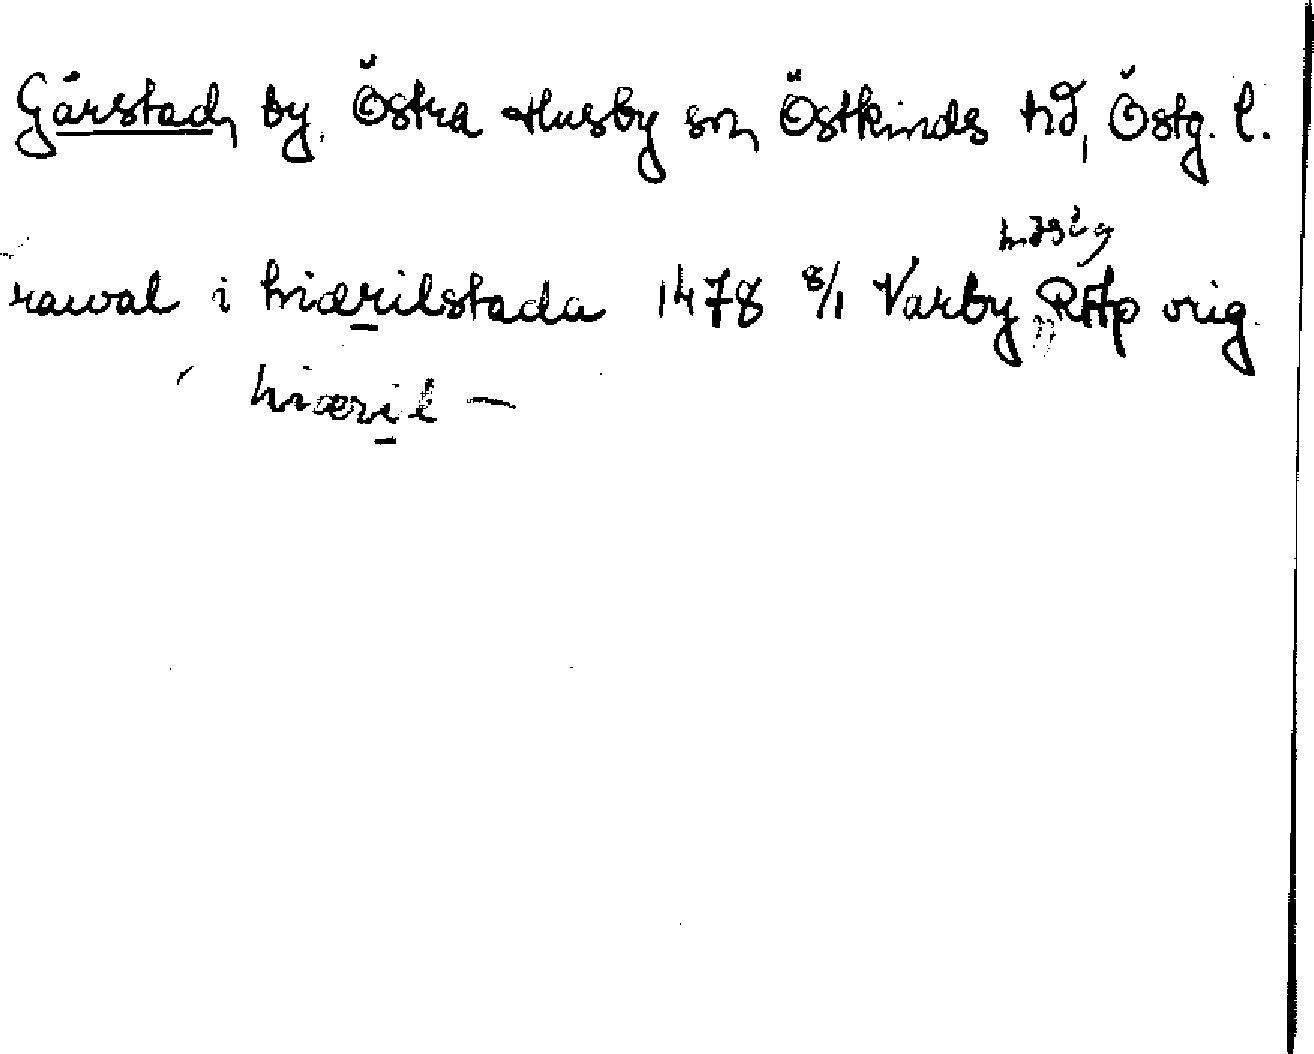 Gårstad, by, Östra Husby sn, Östkinds hd, Östg. l.
rawal i hriærilstada 1478 8/1 Varby RAp orig.
hriæril –